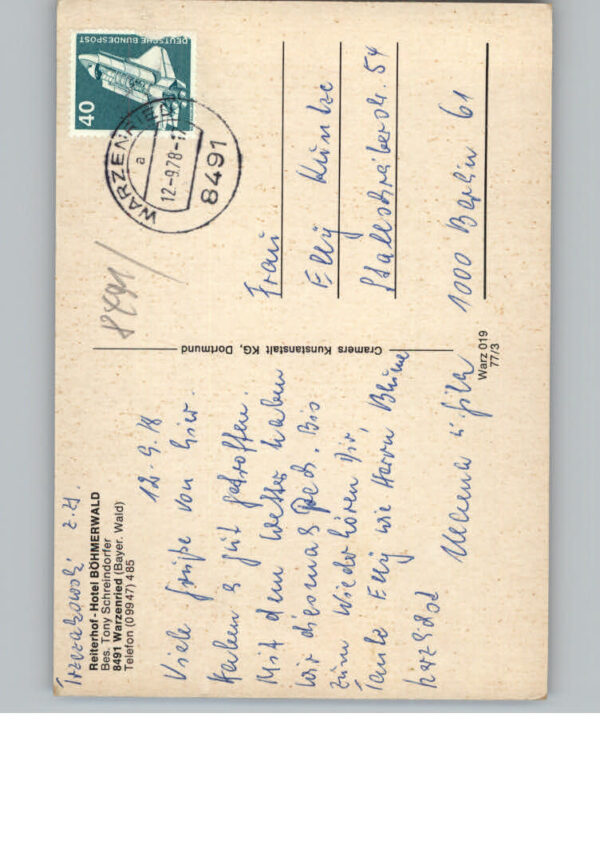 z. Zt.
Reiterhof - Hotel BÖHMERWALD
Bes. Tony Schreindorfer
8491 Warzenried (Bayer. Wald)
Telefon (0 99 47) 4 85
12.9.78
Viele Grüße von hier.
Haben s gut getroffen.
Mit dem Wetter haben
wir diesmal Pech. Bis
zum Wiederhören Dir,
Tante Elly wie Herrn Blume
herzlichst
Cramers Kunstanstalt KG, Dortmund
Warz 019
77/3
8491
DEUTSCHE BUNDESPOST
40
WARZENRIED
a
12-9.78-1
8491
Frau
Elly Kuntze
Stallschreiberstr. 54
1000 Berlin 61